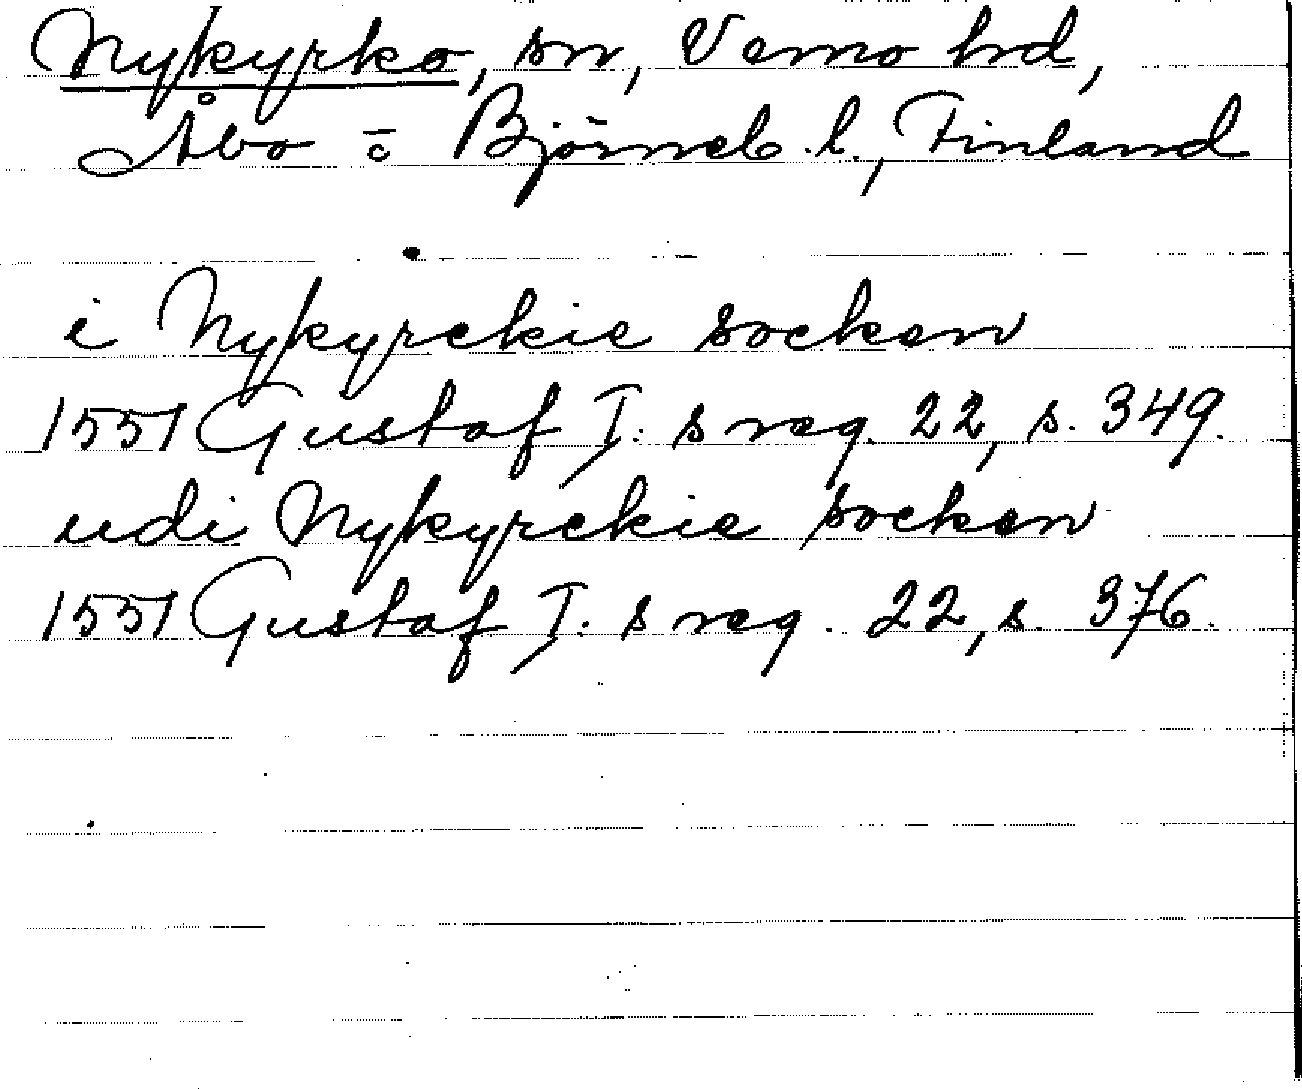 Nykyrko, sn, Vemo hd,
Åbo o Björneb. l., Finland
i Nykyrckie socken
1551 Gustaf I:s reg. 22, s. 349.
udi Nykyrckie socken
1551 Gustaf I:s reg. 22, s. 376.